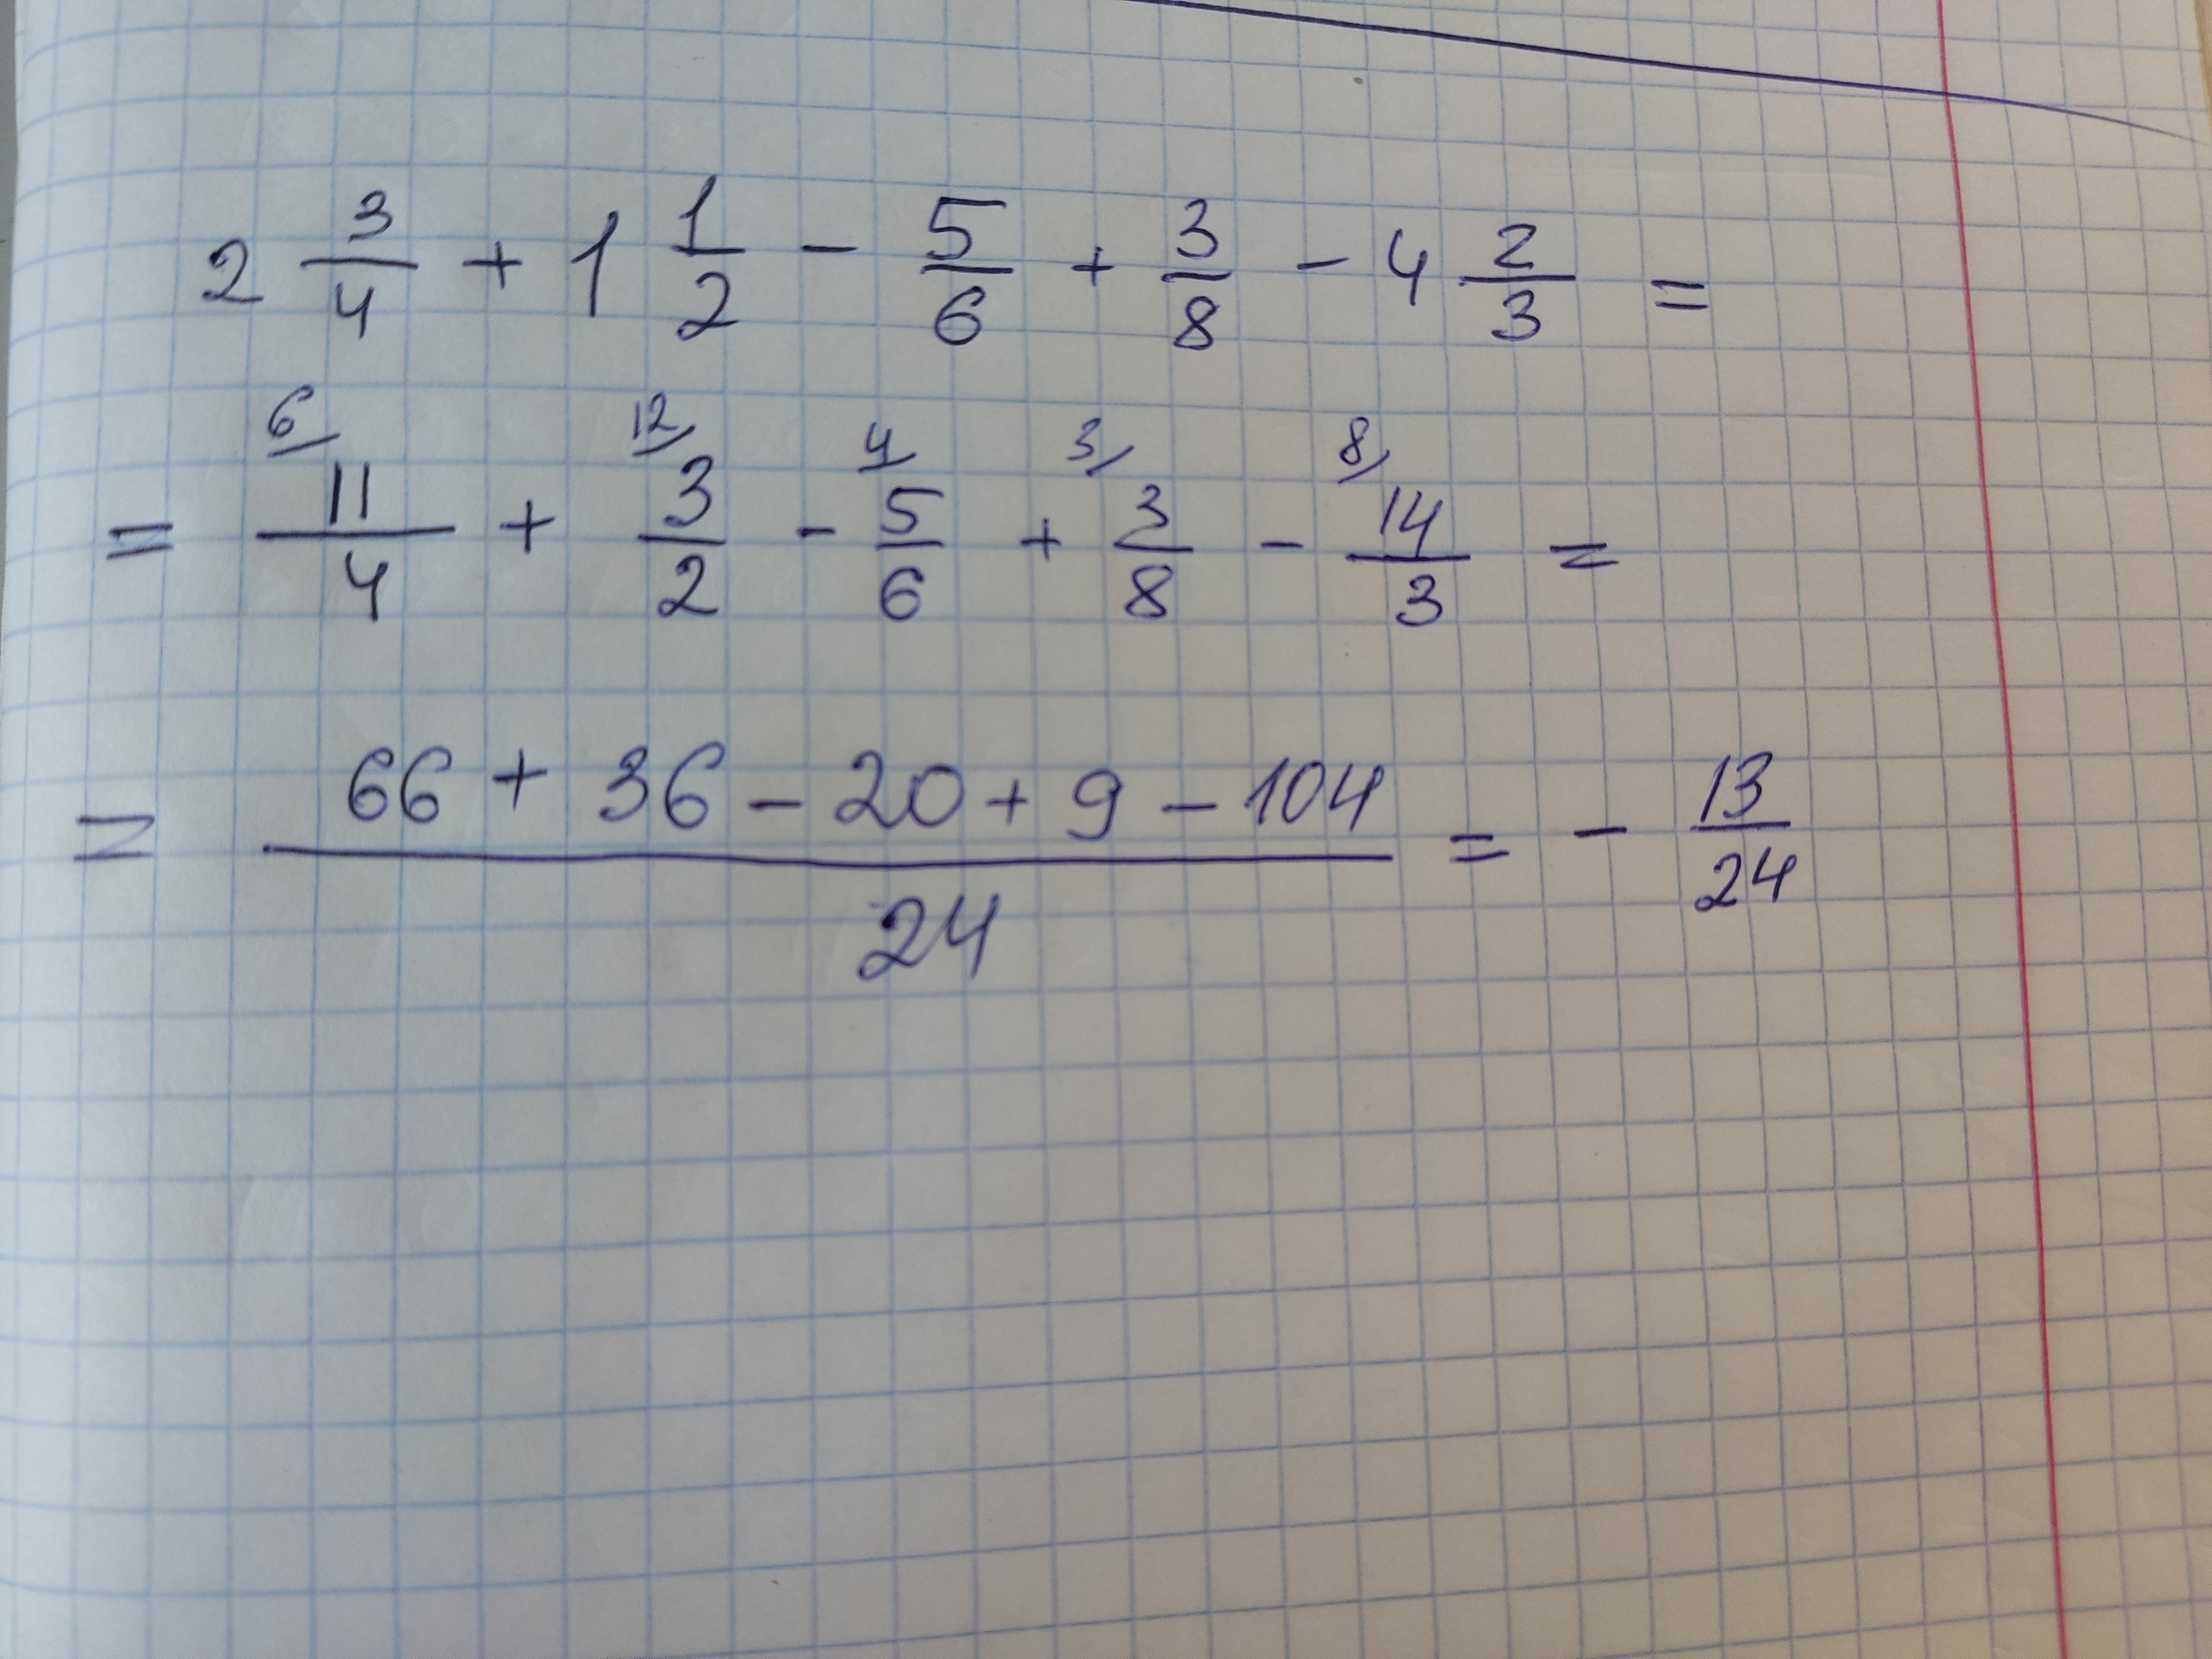 2 3/4 + 1 1/2 - 5/6 + 3/8 - 4 2/3 =
= 6/ 11/4 + 12/ 3/2 - 4/ 5/6 + 3/ 3/8 - 8/ 14/3 =
= (66 + 36 - 20 + 9 - 104)/24 = - 13/24